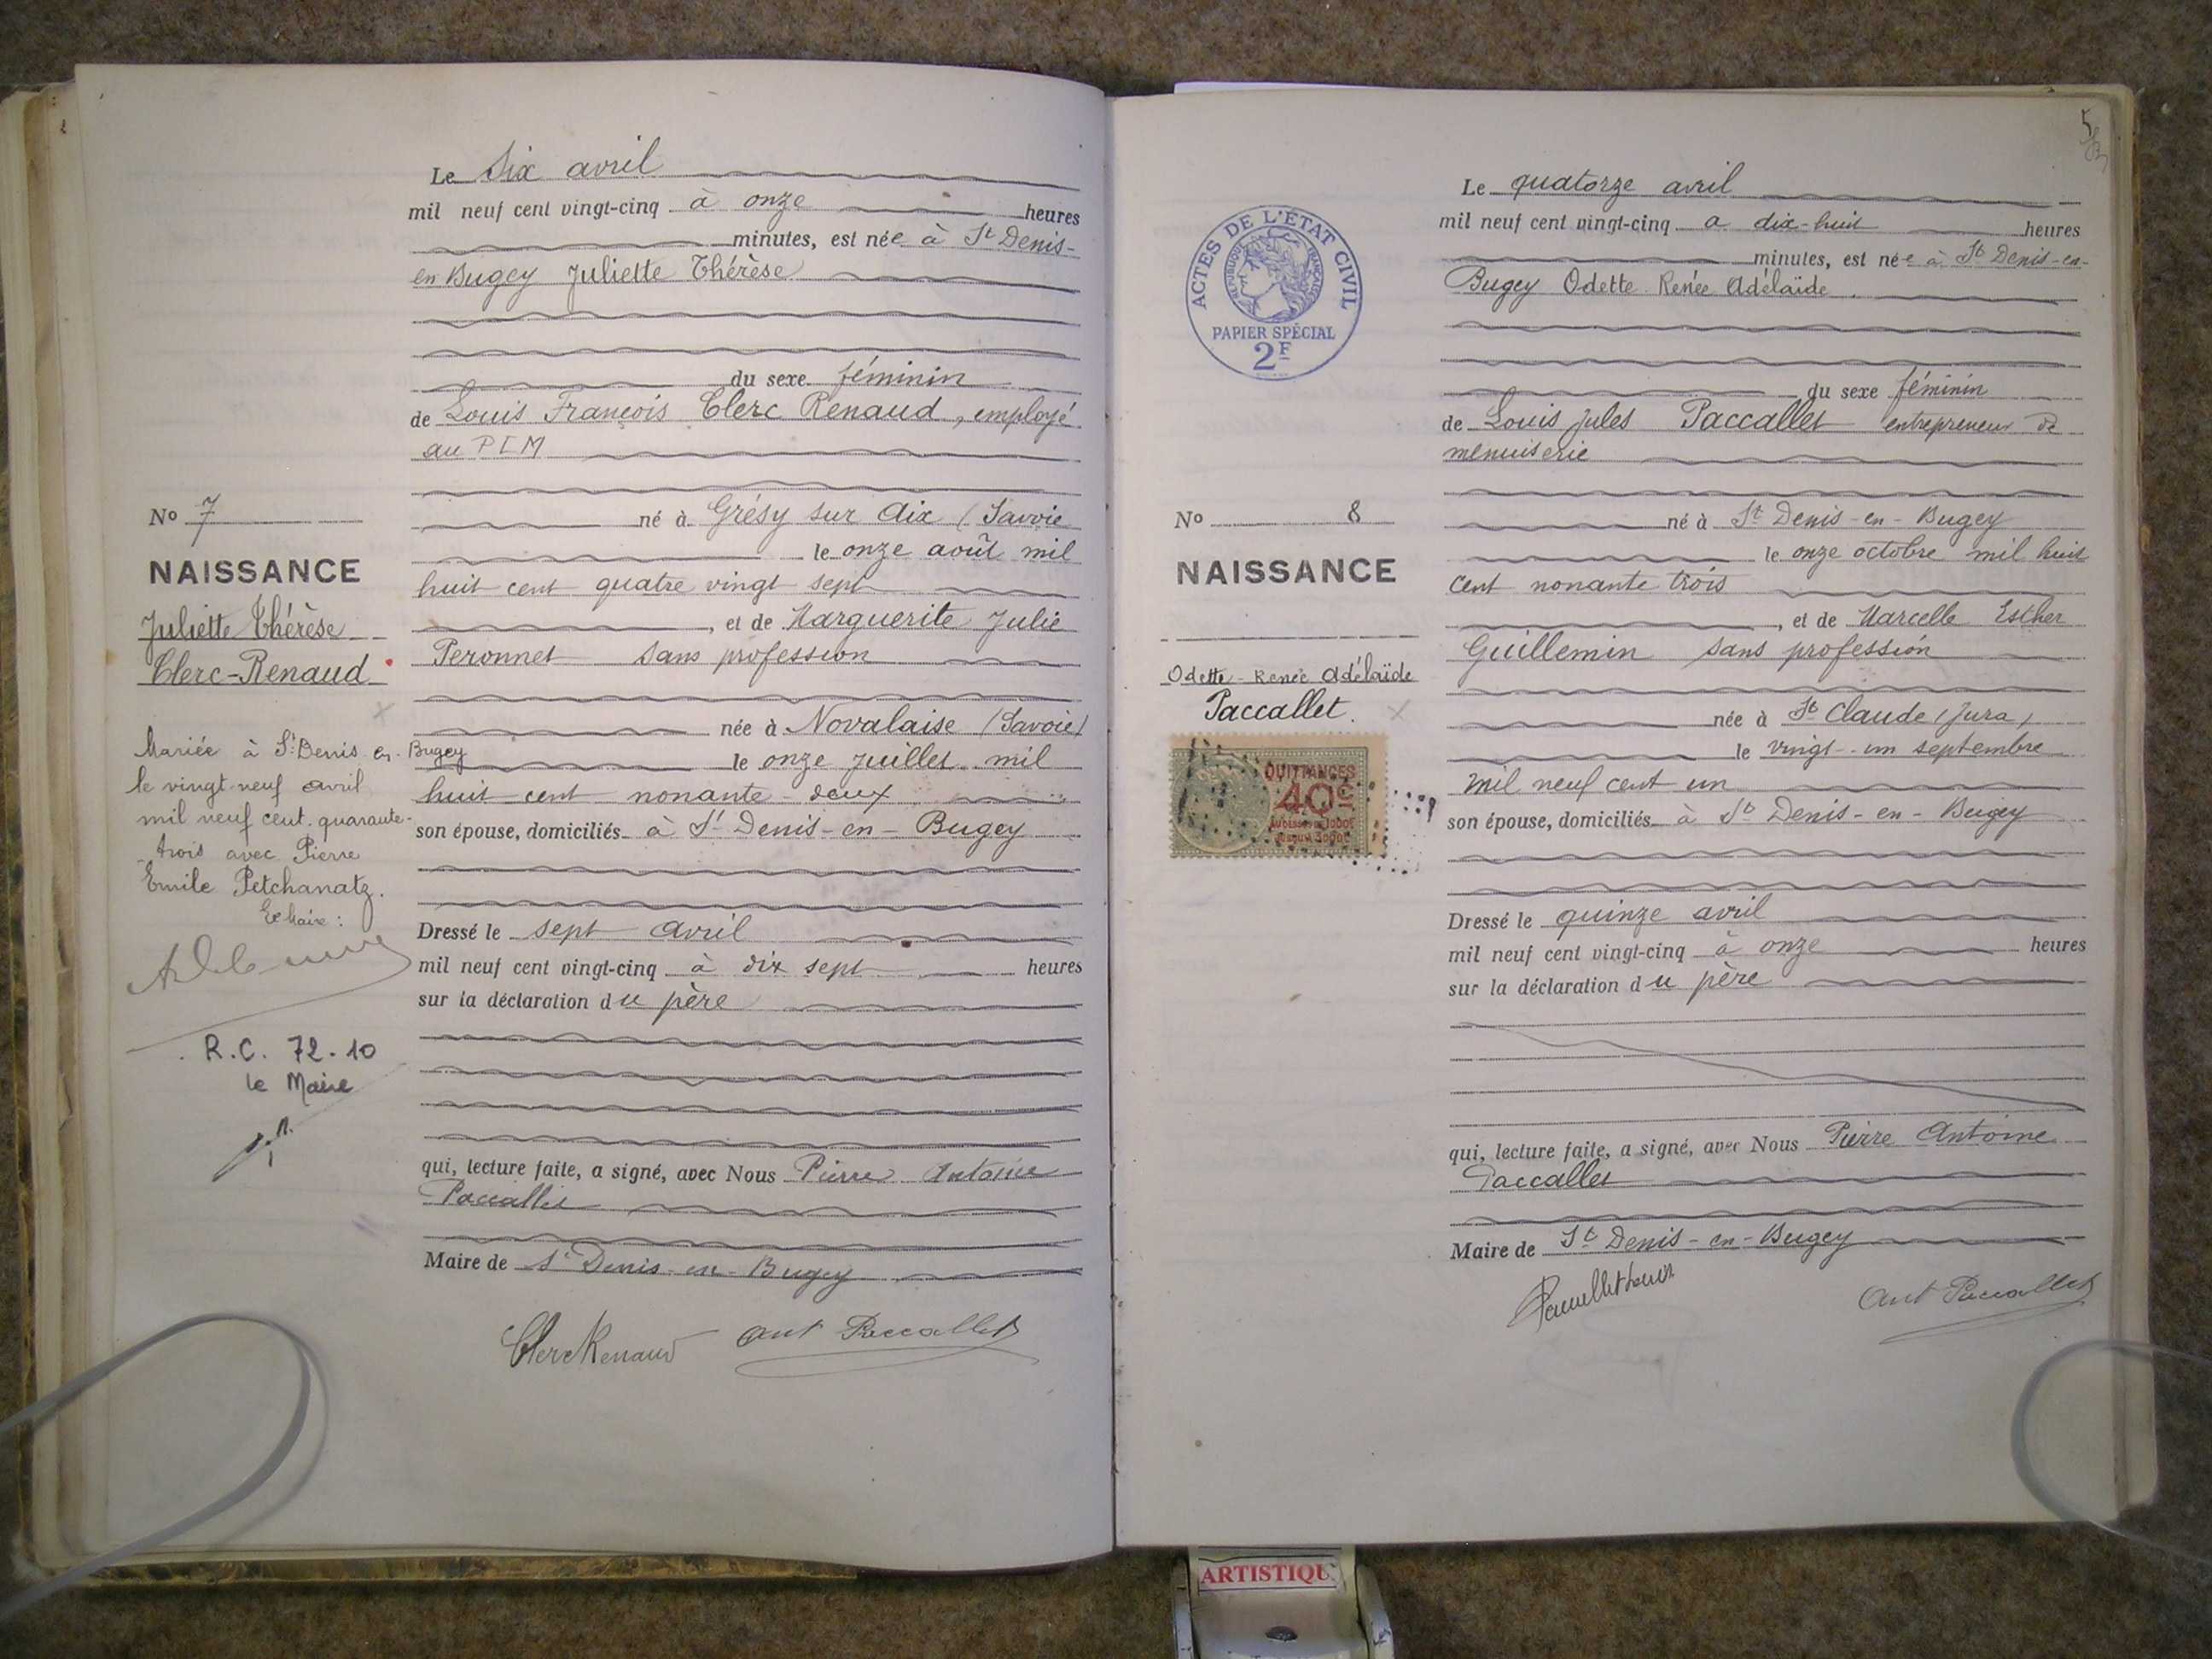 Le Six avril
mil neuf cent vingt-cinq à onze heures
minutes, est née à St Denis-
en Bugey Juliette Thérèse
du sexe féminin
de Louis François Clerc Renaud, employé
au PLM
né à Grésy sur Aix (Savoie
le onze août mil
huit cent quatre vingt sept
, et de Marguerite Julie
Peronnet sans profession
née à Novalaise (Savoie)
le onze juillet mil
huit cent nonante-deux
son épouse, domiciliés à St Denis-en-Bugey
Dressé le sept avril
mil neuf cent vingt-cinq à dix sept heures
sur la déclaration du père
qui, lecture faite, a signé, avec Nous Pierre Antoine
Paccallet
Maire de St Denis-en-Bugey
Clerc Renaud
Ant Paccallet
No 7
NAISSANCE
Juliette Thérèse
Clerc-Renaud
Mariée à St Denis en-Bugey
le vingt-neuf avril
mil neuf cent quarante-
trois avec Pierre
Emile Petchanatz.
Le Maire :
R.C. 72-10
le Maire
5
Le quatorze avril
mil neuf cent vingt-cinq a dix-huit heures
minutes, est née à St Denis-en-
Bugey Odette Renée Adélaïde
du sexe féminin
de Louis Jules Paccallet entrepreneur de
menuiserie
né à St Denis-en-Bugey
le onze octobre mil huit
cent nonante trois
, et de Marcelle Esther
Guillemin sans profession
née à St Claude (Jura)
le vingt-un septembre
mil neuf cent un
son épouse, domiciliés à St Denis-en-Bugey
Dressé le quinze avril
mil neuf cent vingt-cinq à onze heures
sur la déclaration du père
qui, lecture faite, a signé, avec Nous Pierre Antoine
Paccallet
Maire de St Denis-en-Bugey
Paccallet Louis
Ant Paccallet
ACTES DE L'ÉTAT CIVIL
RÉPUBLIQUE FRANÇAISE
PAPIER SPÉCIAL
2F
No 8
NAISSANCE
Odette-Renée Adélaïde
Paccallet.
QUITTANCES
40c
ARTISTIQU